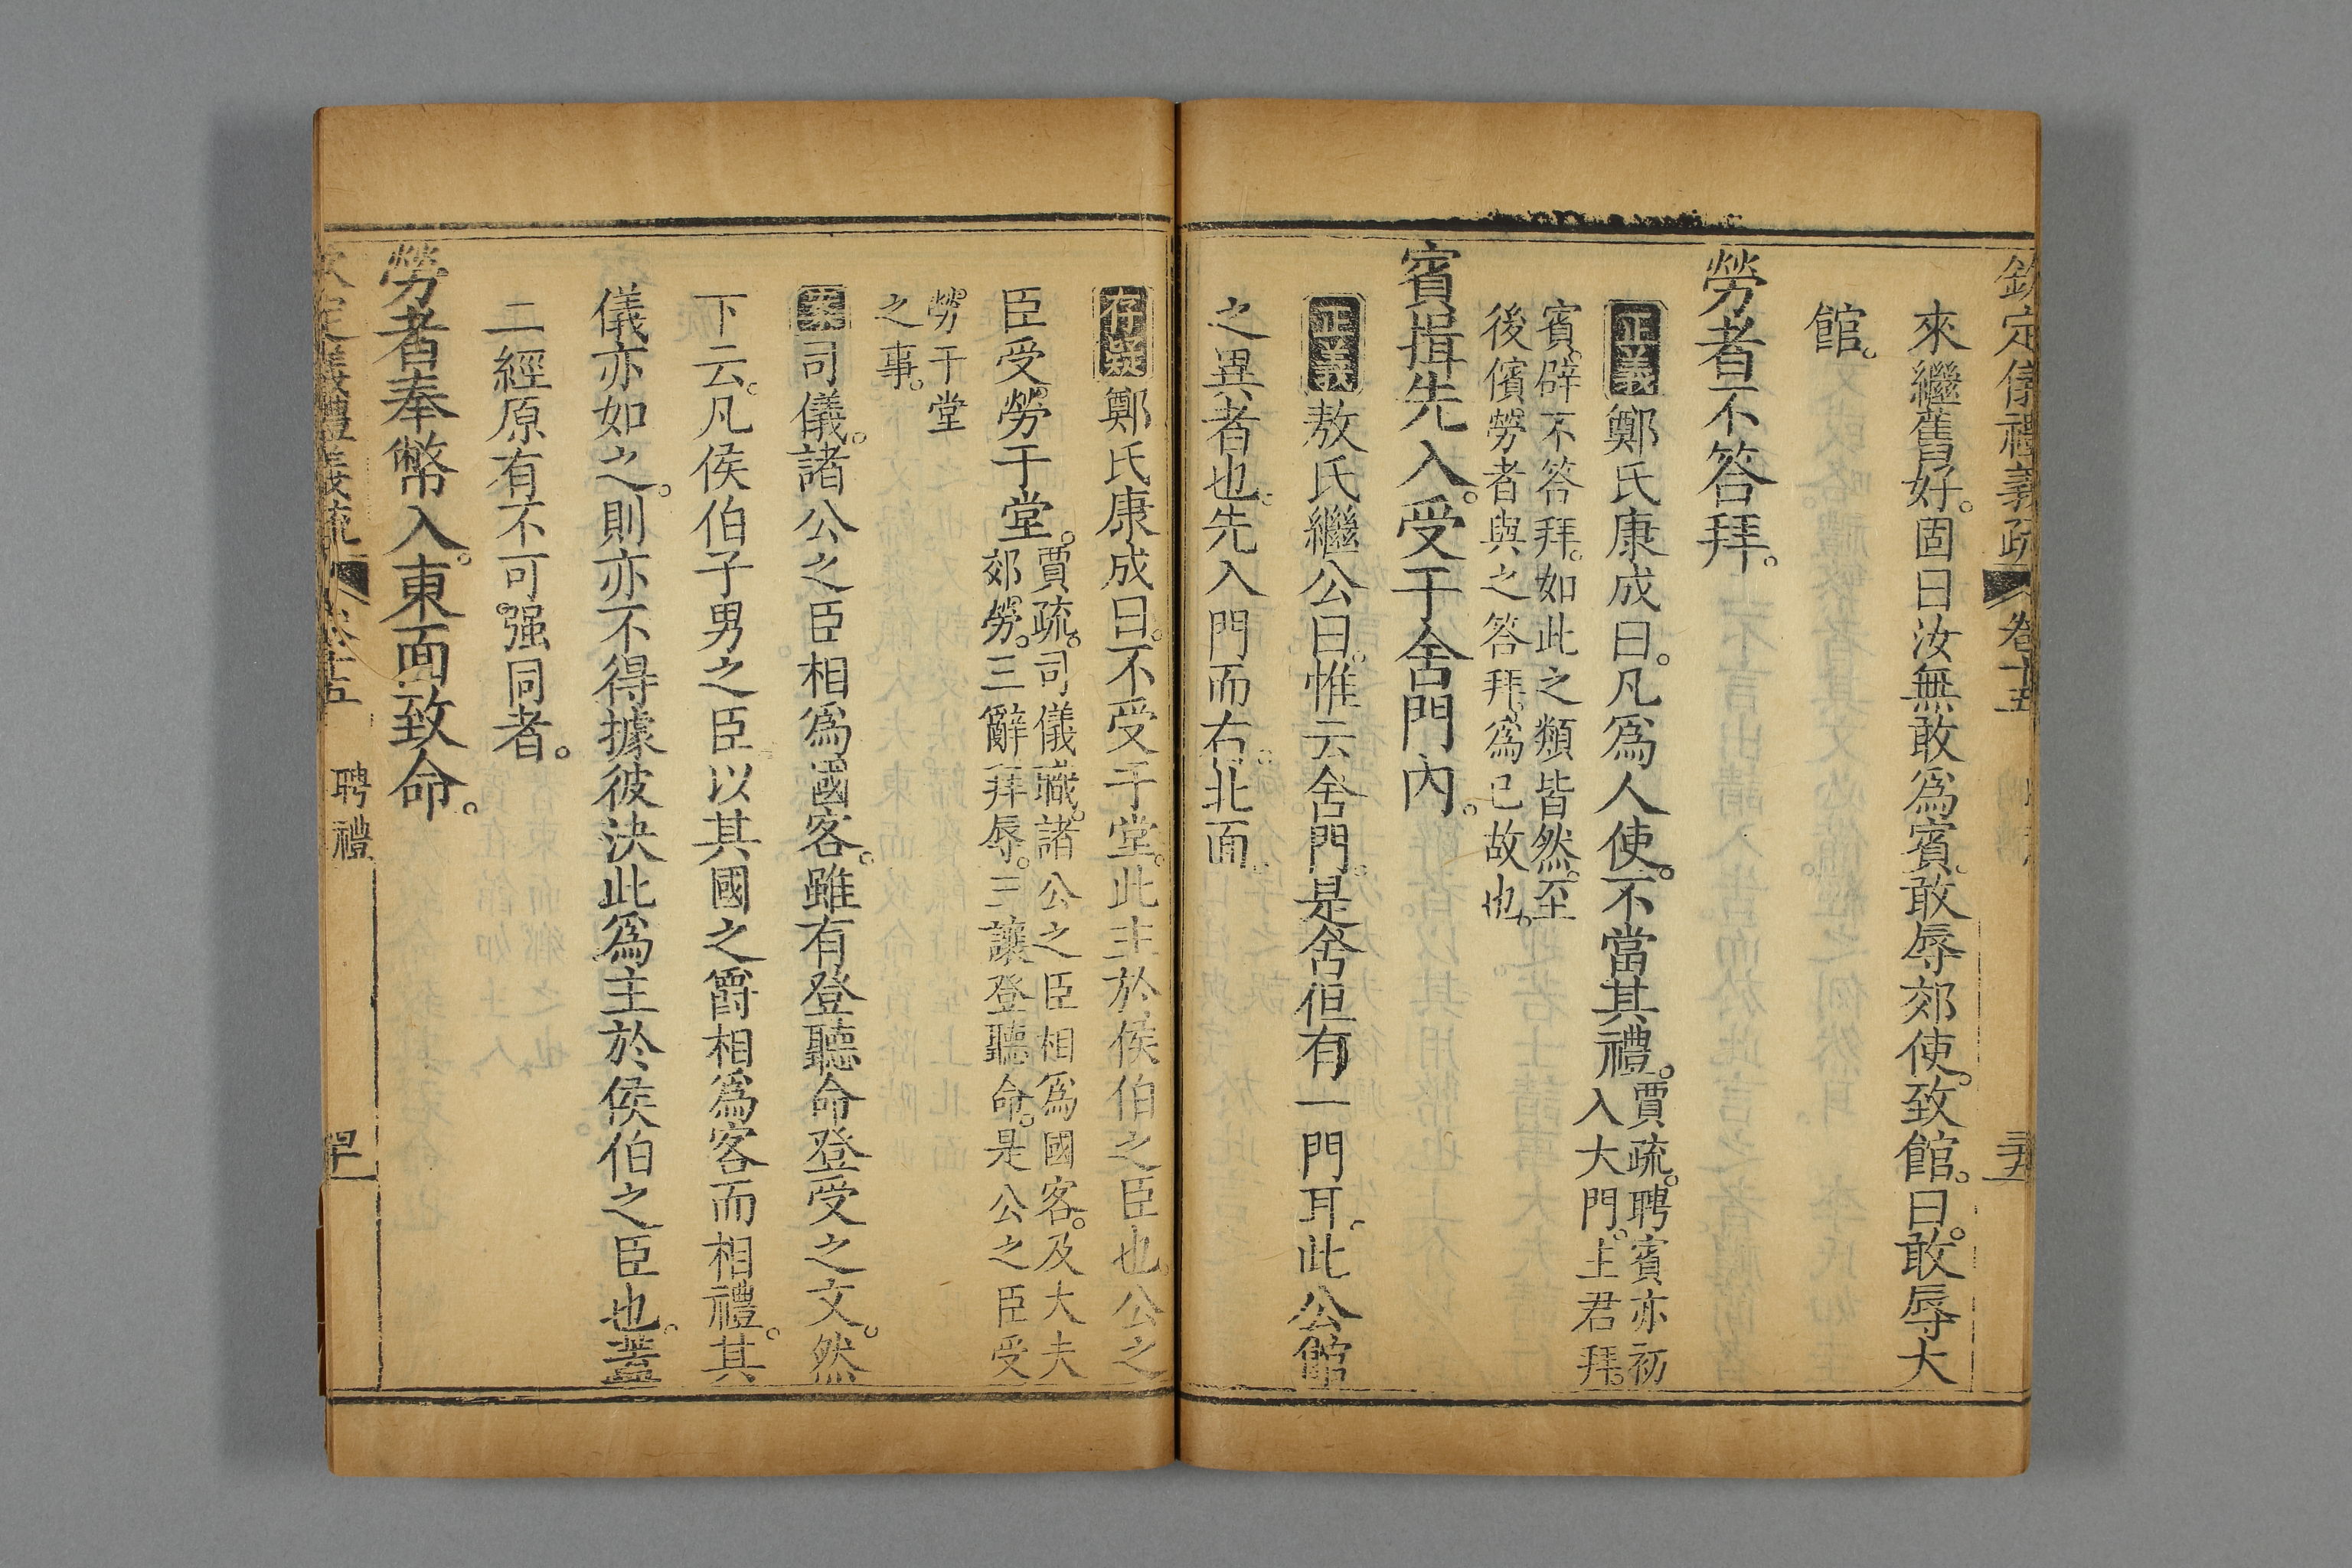 欽定儀禮義疏 卷十五
來繼舊好。固曰汝無敢爲賓。敢辱郊使。致館。曰。敢辱大
館。
勞者不答拜。
正義鄭氏康成曰。凡爲人使。不當其禮。賈疏。聘賓亦初
入大門。主君拜。
賓。辟不答拜。如此之類皆然。至
後儐勞者與之答拜。爲已故也。
賓揖先入。受于舍門內。
正義敖氏繼公曰。惟云舍門。是舍但有一門耳。此公館
之異者也。先入門而右。北面。
存疑鄭氏康成曰。不受于堂。此主於侯伯之臣也。公之
臣受勞于堂。賈疏。司儀職。諸公之臣相爲國客。及大夫
郊勞。三辭拜辱。三讓登聽命。是公之臣受
勞于堂
之事。
案司儀。諸公之臣相爲國客。雖有登聽命登受之文。然
下云。凡侯伯子男之臣以其國之爵相爲客而相禮。其
儀亦如之。則亦不得據彼決此爲主於侯伯之臣也。蓋
二經原有不可强同者。
勞者奉幣入。東面致命。
欽定儀禮義疏 卷十五 聘禮